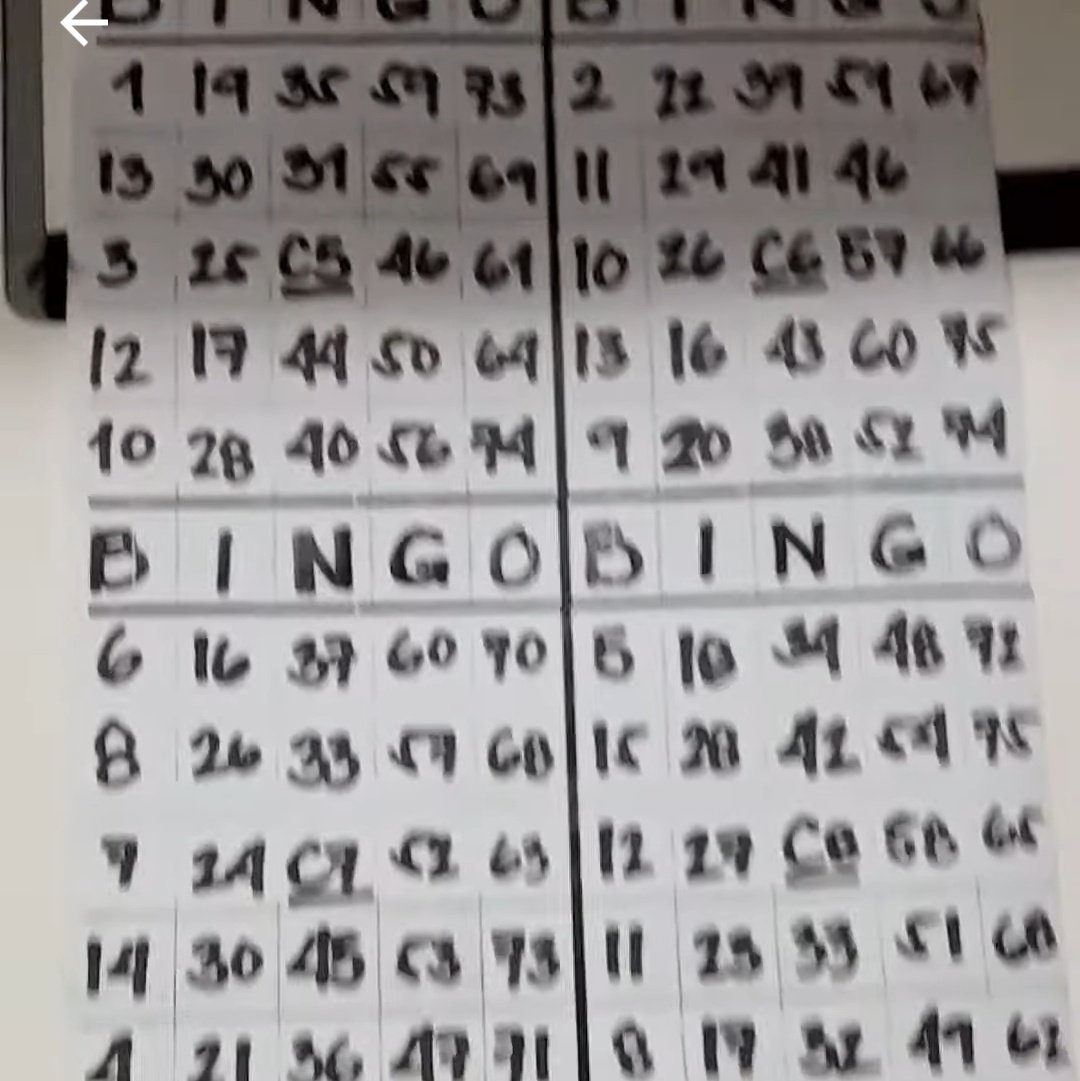 B I N G O B I N G O
1 19 35 59 73 2 22 39 59 67
13 30 31 55 69 11 29 41 46
3 25 C5 46 61 10 26 C6 57 66
12 17 44 50 64 13 16 43 60 75
10 28 40 56 74 9 20 38 52 74
B I N G O B I N G O
6 16 37 60 70 5 18 34 48 72
8 26 33 57 68 15 28 42 54 75
7 24 C7 52 63 12 27 C8 58 65
14 30 45 53 73 11 23 33 51 68
4 21 36 47 71 8 17 32 62